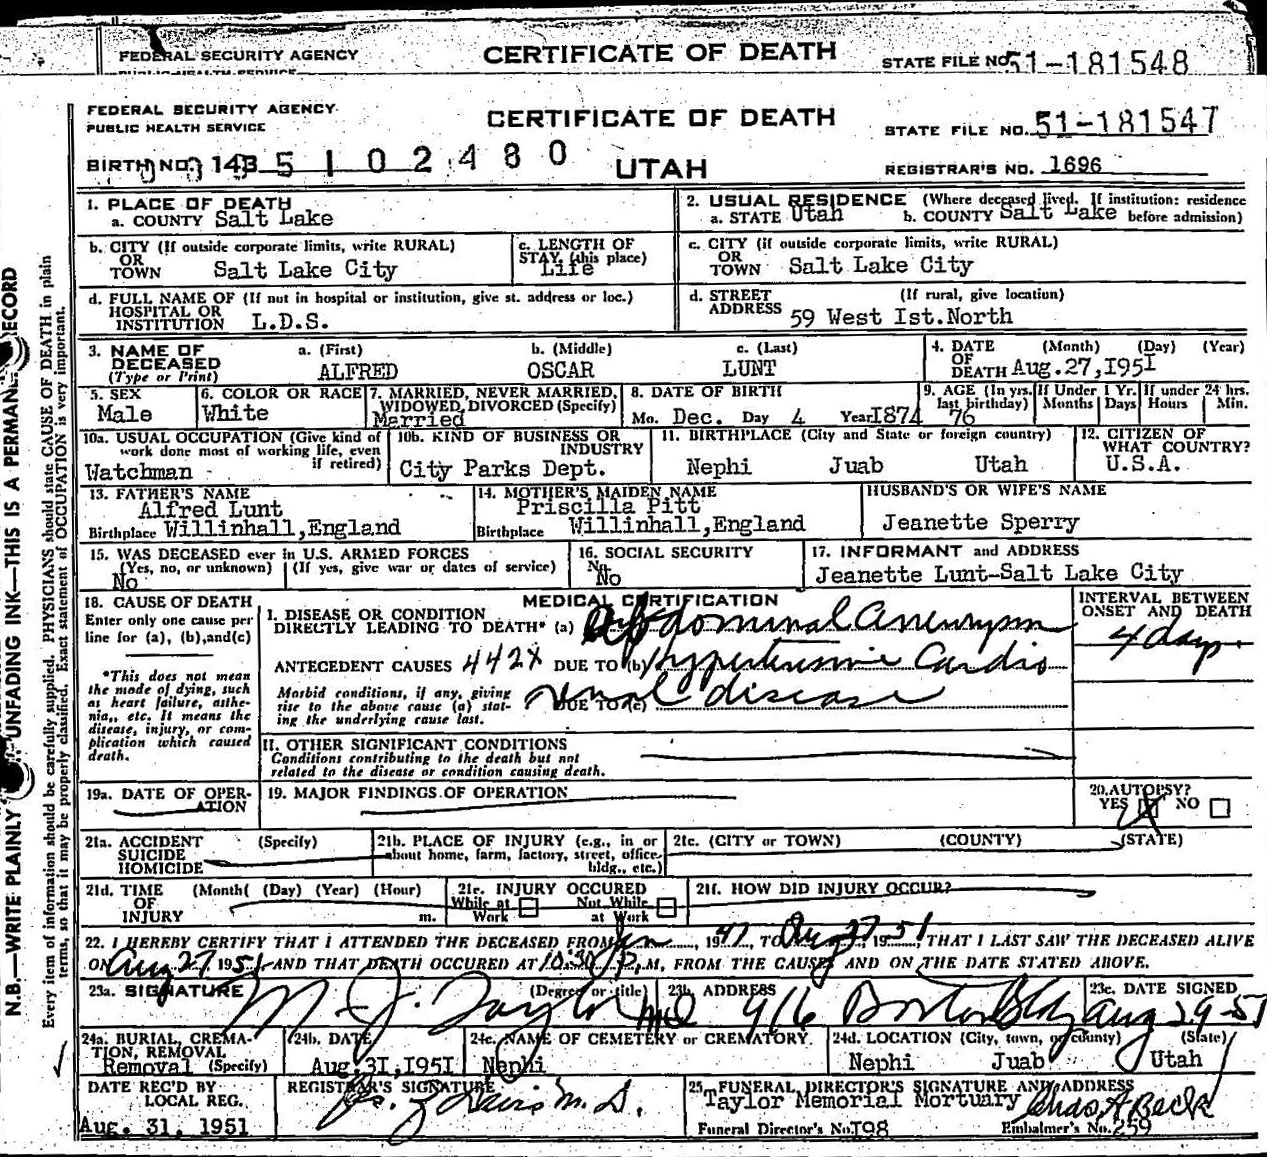 FEDERAL SECURITY AGENCY CERTIFICATE OF DEATH STATE FILE NO. 51-181548
PUBLIC HEALTH SERVICE
FEDERAL SECURITY AGENCY
PUBLIC HEALTH SERVICE CERTIFICATE OF DEATH STATE FILE NO. 51-181547
BIRTH NO. 143 5 1 0 2 4 8 0 UTAH REGISTRAR'S NO. 1696
1. PLACE OF DEATH
a. COUNTY Salt Lake
2. USUAL RESIDENCE (Where deceased lived. If institution: residence
a. STATE Utah b. COUNTY Salt Lake before admission)
b. CITY (If outside corporate limits, write RURAL)
OR
TOWN Salt Lake City
c. LENGTH OF
STAY, (this place)
Life
c. CITY (if outside corporate limits, write RURAL)
OR
TOWN Salt Lake City
d. FULL NAME OF (If not in hospital or institution, give st. address or loc.)
HOSPITAL OR
INSTITUTION L.D.S.
d. STREET (If rural, give location)
ADDRESS 59 West Ist.North
3. NAME OF a. (First) b. (Middle) c. (Last)
DECEASED
(Type or Print) ALFRED OSCAR LUNT
4. DATE (Month) (Day) (Year)
OF
DEATH Aug.27,195I
5. SEX
Male
6. COLOR OR RACE
White
7. MARRIED, NEVER MARRIED,
WIDOWED, DIVORCED (Specify)
Married
8. DATE OF BIRTH
Mo. Dec. Day 4 Year I874
9. AGE (In yrs.
last birthday)
76
If Under 1 Yr.
Months Days
If under 24 hrs.
Hours Min.
10a. USUAL OCCUPATION (Give kind of
work done most of working life, even
if retired)
Watchman
10b. KIND OF BUSINESS OR
INDUSTRY
City Parks Dept.
11. BIRTHPLACE (City and State or foreign country)
Nephi Juab Utah
12. CITIZEN OF
WHAT COUNTRY?
U.S.A.
13. FATHER'S NAME
Alfred Lunt
Birthplace Willinhall,England
14. MOTHER'S MAIDEN NAME
Priscilla Pitt
Birthplace Willinhall,England
HUSBAND'S OR WIFE'S NAME
Jeanette Sperry
15. WAS DECEASED ever in U.S. ARMED FORCES
(Yes, no, or unknown) (If yes, give war or dates of service)
No
16. SOCIAL SECURITY
No
17. INFORMANT and ADDRESS
Jeanette Lunt-Salt Lake City
18. CAUSE OF DEATH
Enter only one cause per
line for (a), (b), and (c)
*This does not mean
the mode of dying, such
as heart failure, asthe-
nia,, etc. It means the
disease, injury, or com-
plication which caused
death.
MEDICAL CERTIFICATION
I. DISEASE OR CONDITION
DIRECTLY LEADING TO DEATH* (a) Abdominal Aneurysm
ANTECEDENT CAUSES 442X DUE TO (b) Hypertensive Cardio
Morbid conditions, if any, giving
rise to the above cause (a) stat-
ing the underlying cause last.
DUE TO (c) renal disease
INTERVAL BETWEEN
ONSET AND DEATH
4 days.
II. OTHER SIGNIFICANT CONDITIONS
Conditions contributing to the death but not
related to the disease or condition causing death.
19a. DATE OF OPER-
ATION
19. MAJOR FINDINGS OF OPERATION
20. AUTOPSY?
YES X NO
21a. ACCIDENT (Specify)
SUICIDE
HOMICIDE
21b. PLACE OF INJURY (e.g., in or
about home, farm, factory, street, office
bldg., etc.)
21c. (CITY or TOWN) (COUNTY) (STATE)
21d. TIME (Month( (Day) (Year) (Hour)
OF
INJURY m.
21e. INJURY OCCURED
While at Not While
Work at Work
21f. HOW DID INJURY OCCUR?
22. I HEREBY CERTIFY THAT I ATTENDED THE DECEASED FROM Jan, 1947 TO Aug 27 1951, THAT I LAST SAW THE DECEASED ALIVE
ON Aug 27 1951 AND THAT DEATH OCCURED AT 10:30 P.M, FROM THE CAUSE AND ON THE DATE STATED ABOVE.
23a. SIGNATURE (Degree or title)
M J. Taylor MD
23b. ADDRESS
916 Boston Bldg
23c. DATE SIGNED
Aug 29-51
24a. BURIAL, CREMA-
TION, REMOVAL
Removal (Specify)
24b. DATE
Aug.31,195I
24c. NAME OF CEMETERY or CREMATORY
Nephi
24d. LOCATION (City, town, or county) (State)
Nephi Juab Utah
DATE REC'D BY
LOCAL REG.
Aug. 31, 1951
REGISTRAR'S SIGNATURE
M.D.
25. FUNERAL DIRECTOR'S SIGNATURE AND ADDRESS
Taylor Memorial Mortuary Chas A Beck
Funeral Director's No. I98 Embalmer's No. 259
N.B.—WRITE PLAINLY UNFADING INK—THIS IS A PERMANE RECORD
Every item of information should be carefully supplied. PHYSICIANS should state CAUSE OF DEATH in plain
terms, so that it may be properly classified. Exact statement of OCCUPATION is very important.